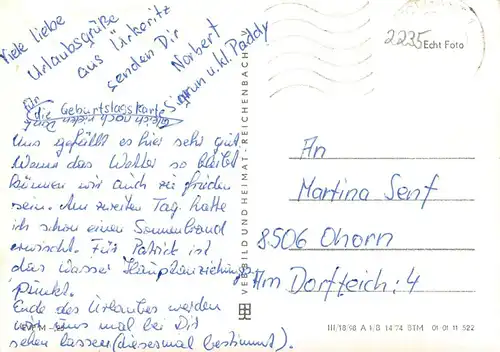 Viele liebe
Urlaubsgrüße
aus Ückeritz
senden Dir
Norbert
Sigrun u. kl. Paddy
Für
die Geburtstagskarte
gleich noch vielen Dank
Uns gefällt es hier sehr gut.
Wenn das Wetter so bleibt
können wir auch zufrieden
sein. Am zweiten Tag hatte
ich schon einen Sonnenbrand
erwischt. Für Patrick ist
das Wasser Hauptanziehungs
punkt.
Ende des Urlaubes werden
wir uns mal bei Dir
sehen lassen (diesesmal bestimmt).
VEB BILD UND HEIMAT · REICHENBACH
2235 Echt Foto
An
Martina Senf
8506 Ohorn
Am Dorfteich: 4
III/18/98 A 1/B 14/74 BTM 01 01 11 522